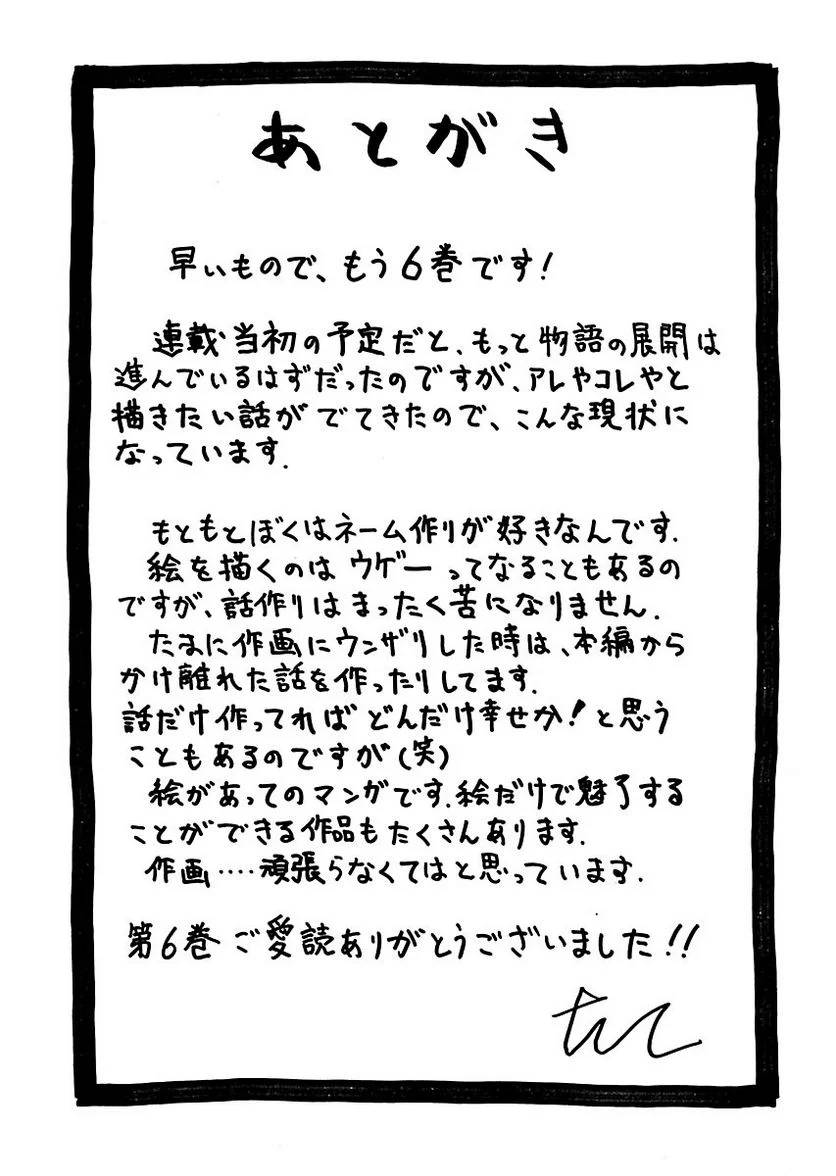 あとがき
早いもので、もう6巻です!
連載当初の予定だと、もっと物語の展開は
進んでいるはずだったのですが、アレやコレやと
描きたい話がでてきたので、こんな現状に
なっています.
もともとぼくはネーム作りが好きなんです.
絵を描くのはウゲーってなることもあるの
ですが、話作りはまったく苦になりません.
たまに作画にウンザリした時は、本編から
かけ離れた話を作ったりしてます.
話だけ作ってればどんだけ幸せか!と思う
こともあるのですが(笑)
絵があってのマンガです.絵だけで魅了する
ことができる作品もたくさんあります.
作画‥‥頑張らなくてはと思っています.
第6巻ご愛読ありがとうございました!!